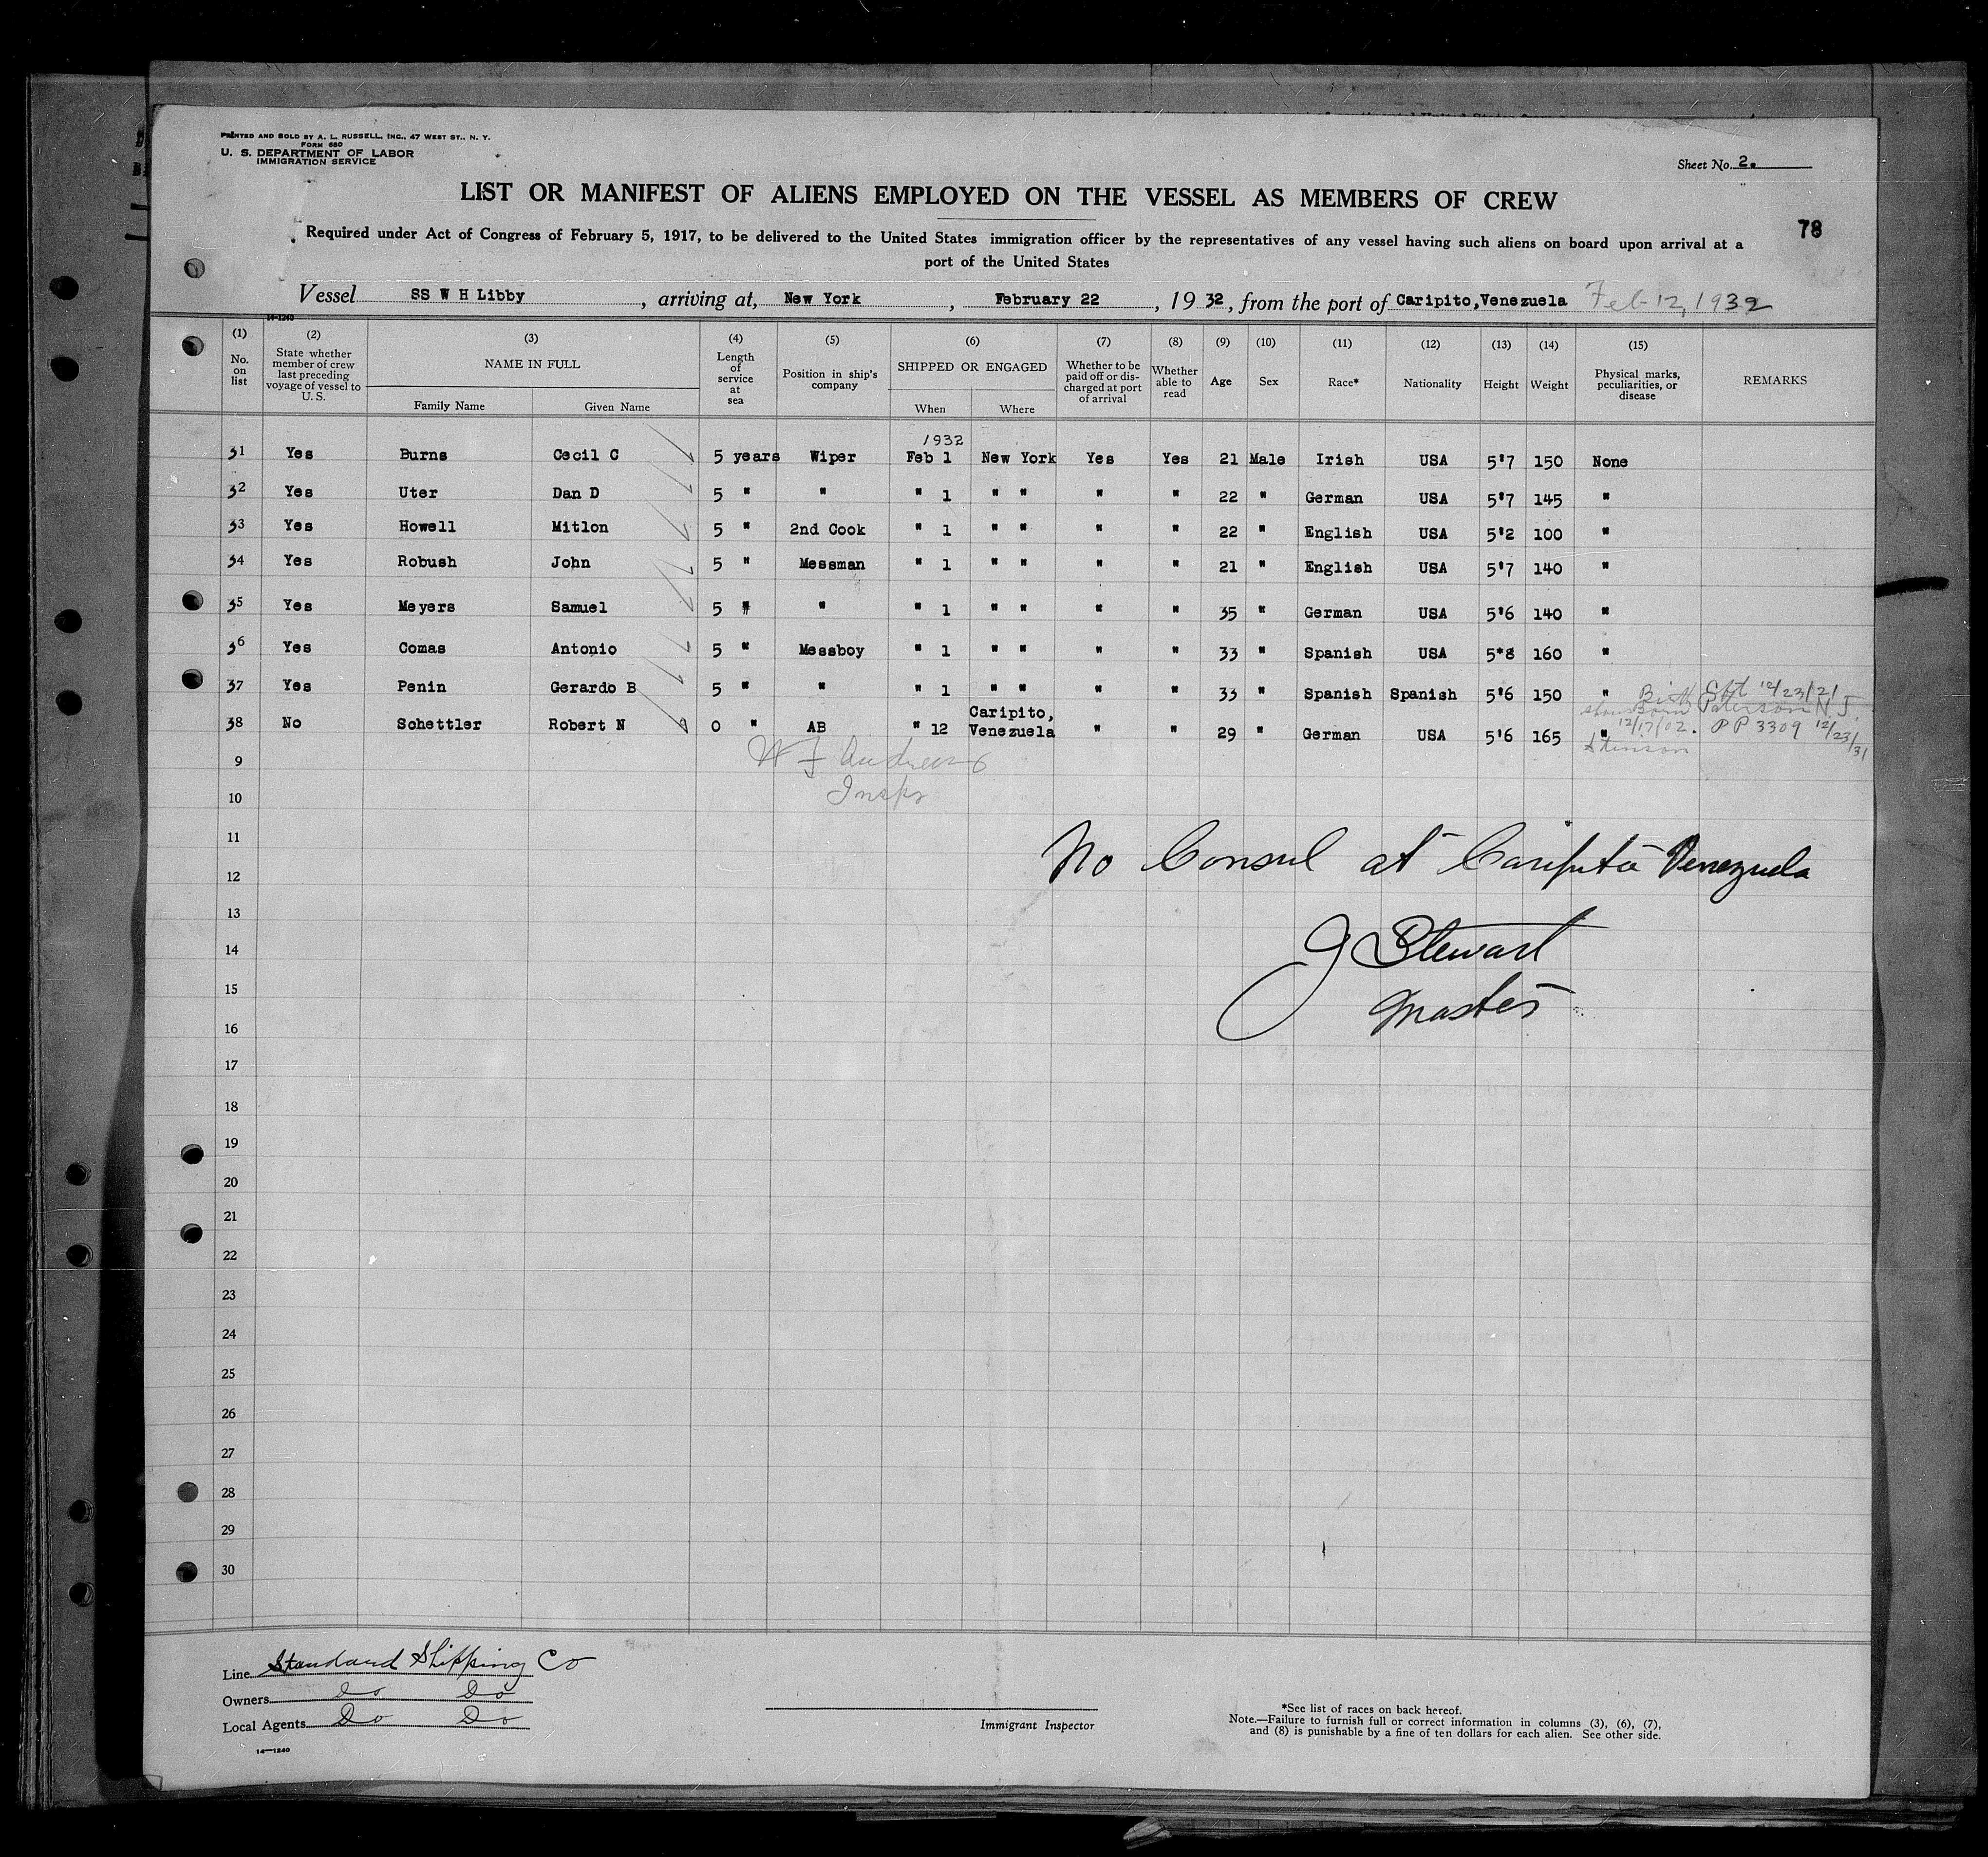 PRINTED AND SOLD BY A. L. RUSSELL, INC., 47 WEST ST., N. Y.
FORM 680
U. S. DEPARTMENT OF LABOR
IMMIGRATION SERVICE
Sheet No. 2.
LIST OR MANIFEST OF ALIENS EMPLOYED ON THE VESSEL AS MEMBERS OF CREW
78
Required under Act of Congress of February 5, 1917, to be delivered to the United States immigration officer by the representatives of any vessel having such aliens on board upon arrival at a
port of the United States
Vessel SS W H Libby, arriving at, New York, February 22, 1932, from the port of Caripito, Venezuela Feb 12, 1932
14-1240
(1) No. on list
(2) State whether member of crew last preceding voyage of vessel to U. S.
(3) NAME IN FULL Family Name Given Name
(4) Length of service at sea
(5) Position in ship's company
(6) SHIPPED OR ENGAGED When Where
(7) Whether to be paid off or discharged at port of arrival
(8) Whether able to read
(9) Age
(10) Sex
(11) Race*
(12) Nationality
(13) Height
(14) Weight
(15) Physical marks, peculiarities, or disease
REMARKS
1932
31 Yes Burns Cecil C 5 years Wiper Feb 1 New York Yes Yes 21 Male Irish USA 5'7 150 None
32 Yes Uter Dan D 5 " " " 1 " " " " 22 " German USA 5'7 145 "
33 Yes Howell Mitlon 5 " 2nd Cook " 1 " " " " 22 " English USA 5'2 100 "
34 Yes Robush John 5 " Messman " 1 " " " " 21 " English USA 5'7 140 "
35 Yes Meyers Samuel 5 " " " 1 " " " " 35 " German USA 5'6 140 "
36 Yes Comas Antonio 5 " Messboy " 1 " " " " 33 " Spanish USA 5'8 160 "
37 Yes Penin Gerardo B 5 " " " 1 " " " " 33 " Spanish Spanish 5'6 150 "
38 No Schettler Robert N 0 " AB " 12 Caripito, Venezuela " " 29 " German USA 5'6 165 "
Birth Cft 12/23/21
Born Paterson N. J.
12/17/02. PP 3309 12/23/31
W J Andrews
Inspr
9
10
11
No Consul at Caripito Venezuela
12
13
J Stewart
14
15
Master
16
17
18
19
20
21
22
23
24
25
26
27
28
29
30
Line Standard Shipping Co
Owners Do Do
Local Agents Do Do
14—1240
Immigrant Inspector
*See list of races on back hereof.
Note.—Failure to furnish full or correct information in columns (3), (6), (7),
and (8) is punishable by a fine of ten dollars for each alien. See other side.